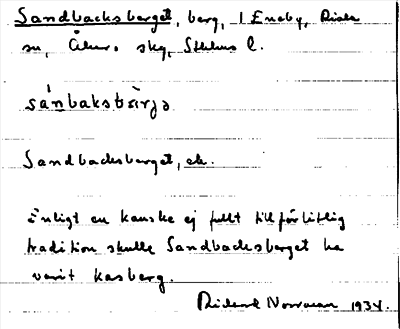 Sandbacksberget, berg, 1 Eneby, Risle
sn, Åkers skg, Sthlms l.
sánbaksbàrjə
Sandbacksberget, ek.
Enligt en kanske ej fullt tillförlitlig
tradition skulle Sandbacksberget ha
varit kasberg.
Rickard Norrman 1934.